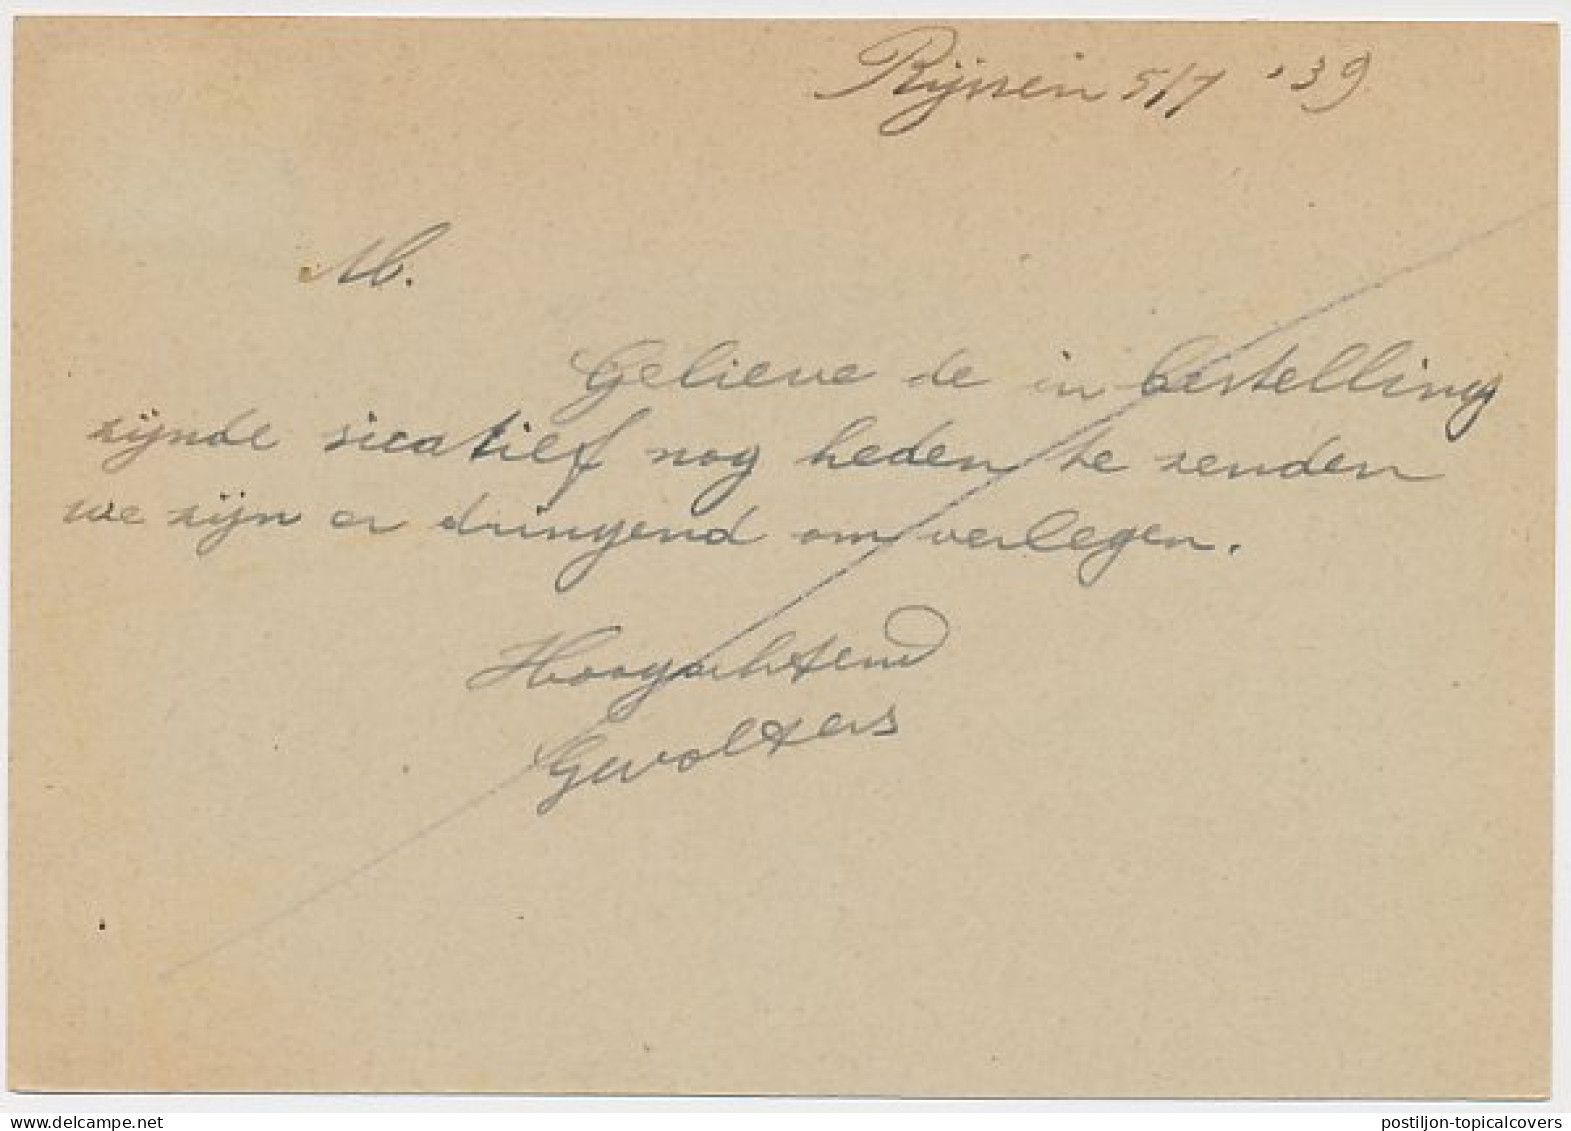 Rijssen 5/7 '39
M.
Gelieve de in bestelling
zijnde sicatief nog heden te zenden
we zijn er dringend om verlegen.
Hoogachtend
GWolters
postiljon-topicalcovers